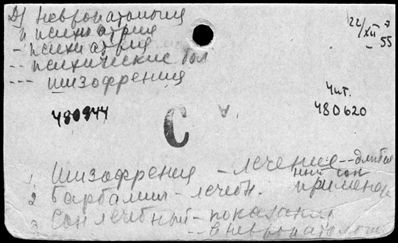 Д) Невропатология
и психиатрия
- психиатрия
-- психические бол
--- шизофрения
22/XII - 55
480944
Чит.
480620
С А
1 Шизофрения - лечение -- длительный сон
2 Барбамил - лечебн. применен
3 Сон лечебный - показания
-- в невропатологии